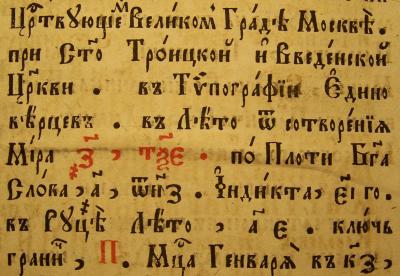 Црⷭ҇твующіеⷨ Вели́комъ Гра́дѣ Москвѣ̀.
при Сто́й Тро́ицкой и҆ Введе́нской
Цр҃кви . въ Тѷпогра́фїи Є҆дино
вѣ́рцевъ . въ Лѣ́то ѿ сотворе́нїѧ
Мі́ра ҂з҃, тѯ҃є . по́ Пло́ти Бг҃а
Сло́ва, ҂а҃, ѿн҃з . І҆ндїкта, є҃і го .
въ Руцѣ̀ Лѣ́то, а҃ є . клю́чь
грани́ⷱ, П . Мц҃а Генварѧ̀ въ к҃з,